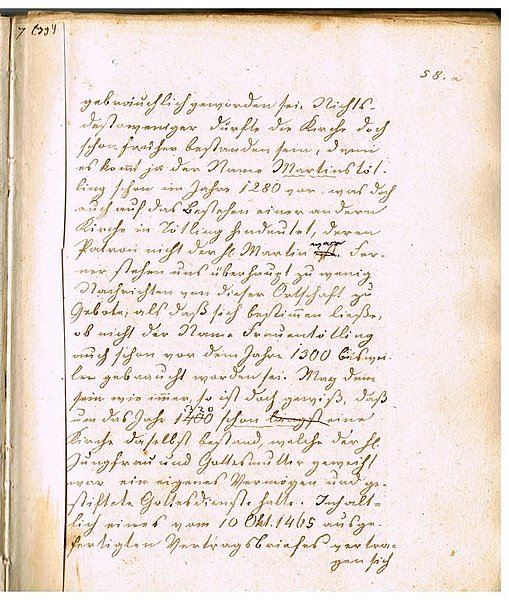 58. a
gebräuchlich geworden sei. Nichts-
destoweniger dürfte die Kirche doch
schon früher bestanden sein, denn
es kommt ja der Name Martinstöt-
ling schon im Jahre 1280 vor, was doch
auch auf das Bestehen einer andern
Kirche in Tötling hindeutet, deren
Patron nicht der hl. Martin war. Fer-
ner stehen uns überhaupt zu wenig
Nachrichten von dieser Ortschaft zu
Gebote, als daß sich bestimmen ließe,
ob nicht der Name Frauentötling
auch schon vor dem Jahre 1300 biswei-
len gebraucht worden sei. Mag dem
sein wie immer, so ist doch gewiß, daß
um das Jahr schon längst eine
Kirche daselbst bestand, welche der hl.
Jungfrau und Gottesmutter geweiht
war ein eigenes Vermögen und ge-
stiftete Gottesdienste hatte. Inhalt-
lich eines vom 10 Okt. 1465 ausge-
fertigten Vertragsbriefes vertra-
gen sich